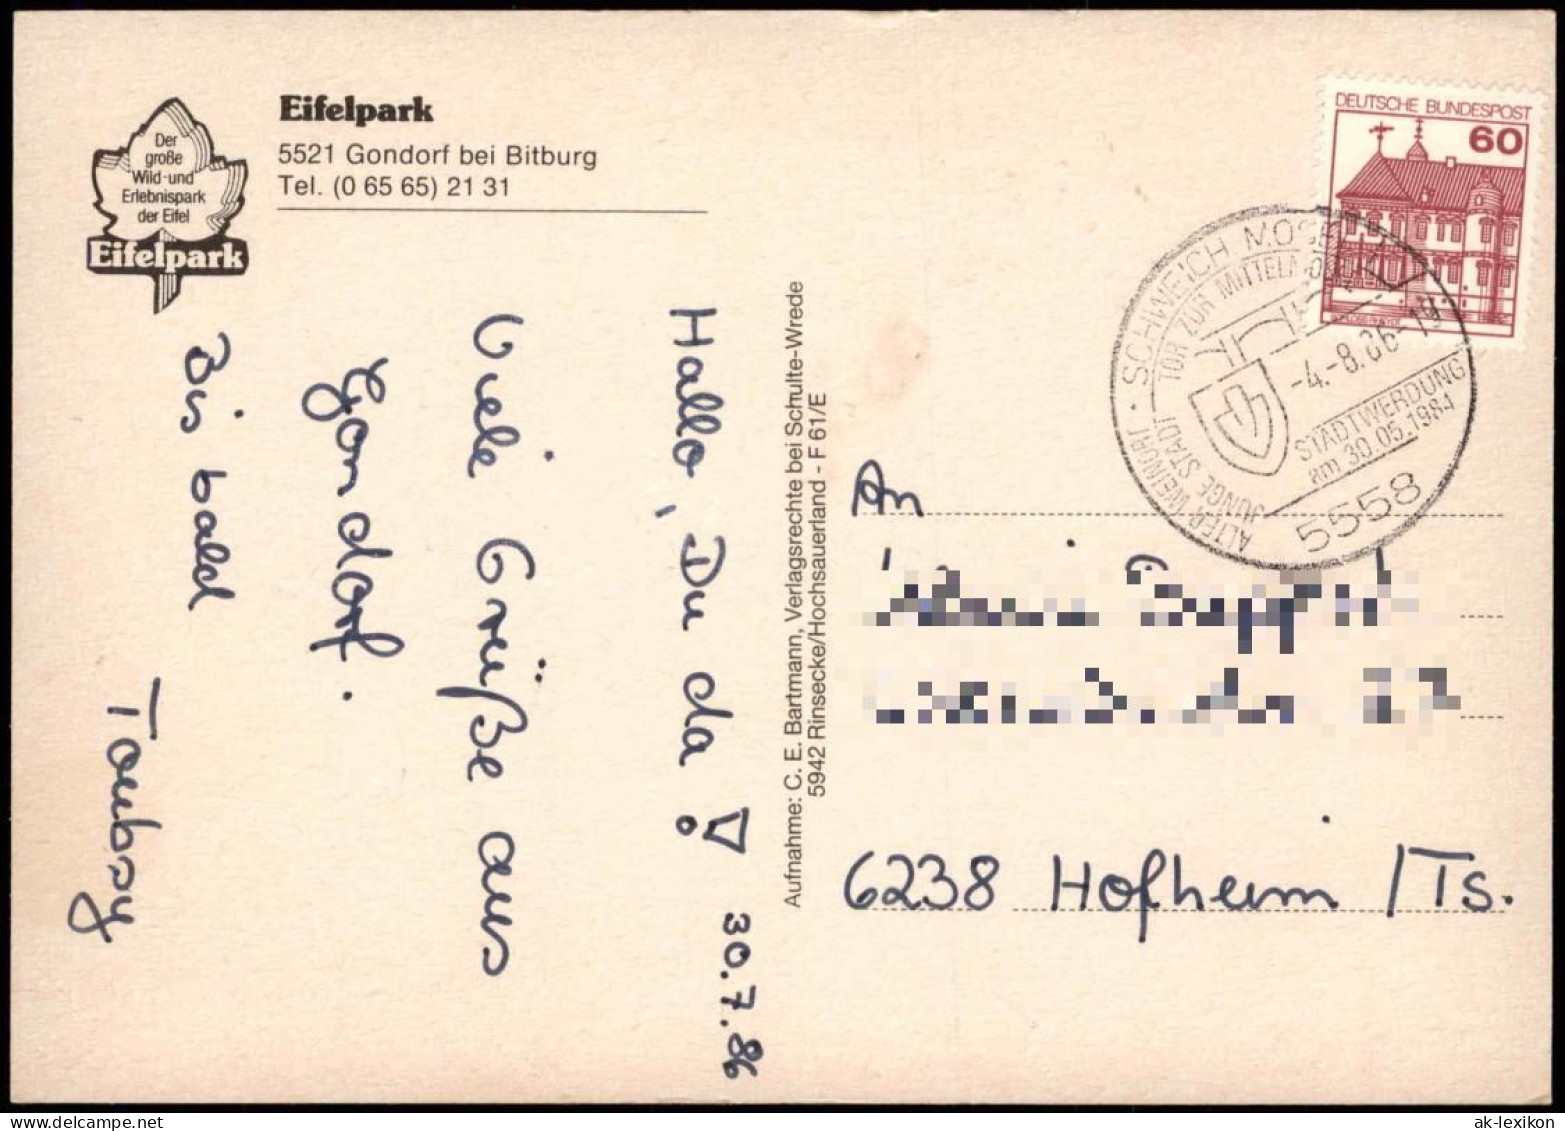 Der
große
Wild-und
Erlebnispark
der Eifel
Eifelpark
Eifelpark
5521 Gondorf bei Bitburg
Tel. (0 65 65) 21 31
30.7.86
Hallo, Du da!
Viele Grüße aus
Gondorf.
Bis bald
Tomboy
Aufnahme: C. E. Bartmann, Verlagsrechte bei Schulte-Wrede
5942 Rinsecke/Hochsauerland - F 61/E
DEUTSCHE BUNDESPOST
60
SCHWEICH MOSEL
TOR ZUR MITTELMOSEL
-4.-8.86-19
STADTWERDUNG
am 30.05.1984
ALTER WEINORT
JUNGE STADT
5558
An
6238 Hofheim /Ts.
ak-lexikon